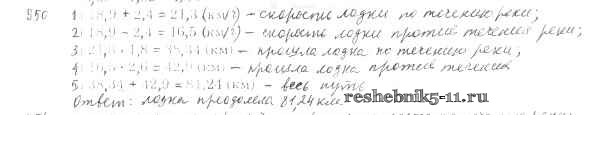 950 1) 18,9 + 2,4 = 21,3 (км/г) – скорость лодки по течению реки;
2) 18,9 – 2,4 = 16,5 (км/г) – скорость лодки против течения реки;
3) 21,3 · 1,8 = 38,34 (км) – прошла лодка по течению реки;
4) 16,5 · 2,6 = 42,9 (км) – прошла лодка против течения
5) 38,34 + 42,9 = 81,24 (км) – весь путь
Ответ: лодка преодолела 81,24 км.
reshebnik5-11.ru